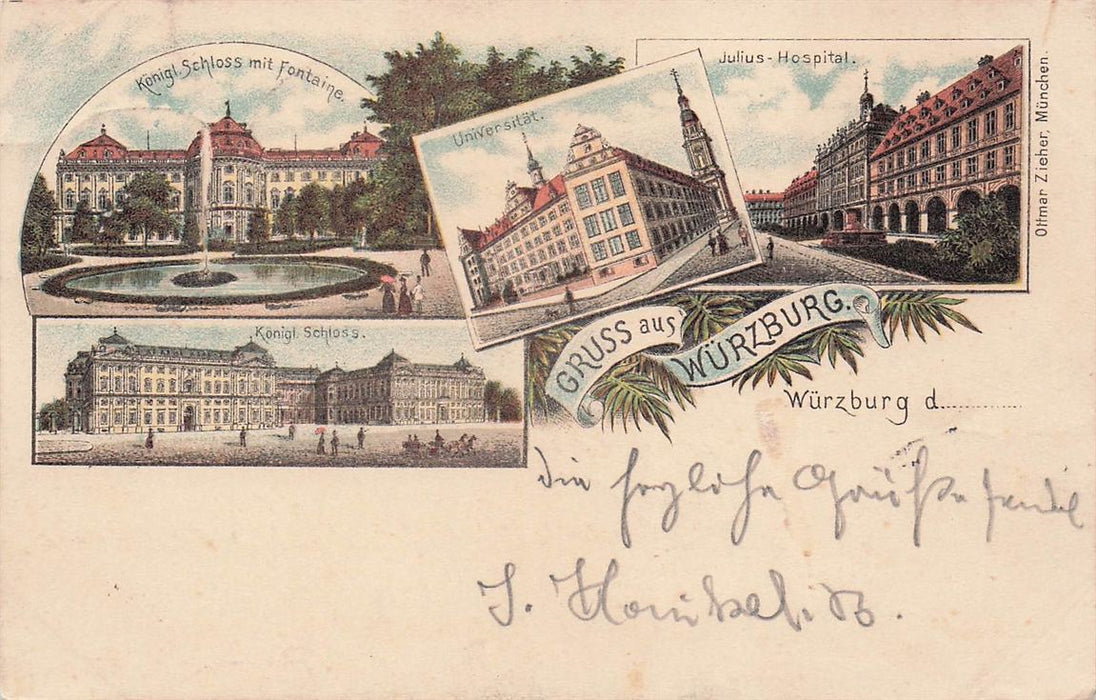 Königl. Schloss mit Fontaine.
Universität.
Julius-Hospital.
Ottmar Zieher, München.
Königl. Schloss.
GRUSS aus WÜRZBURG.
Würzburg d.............
die herzliche Grüße sendet